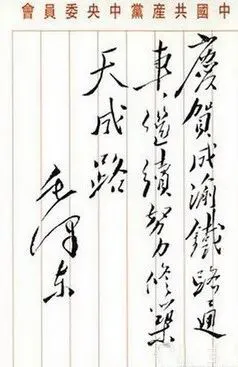 中國共產黨中央委員會
慶賀成渝鐵路通
車,繼續努力修築
天成路
毛澤东